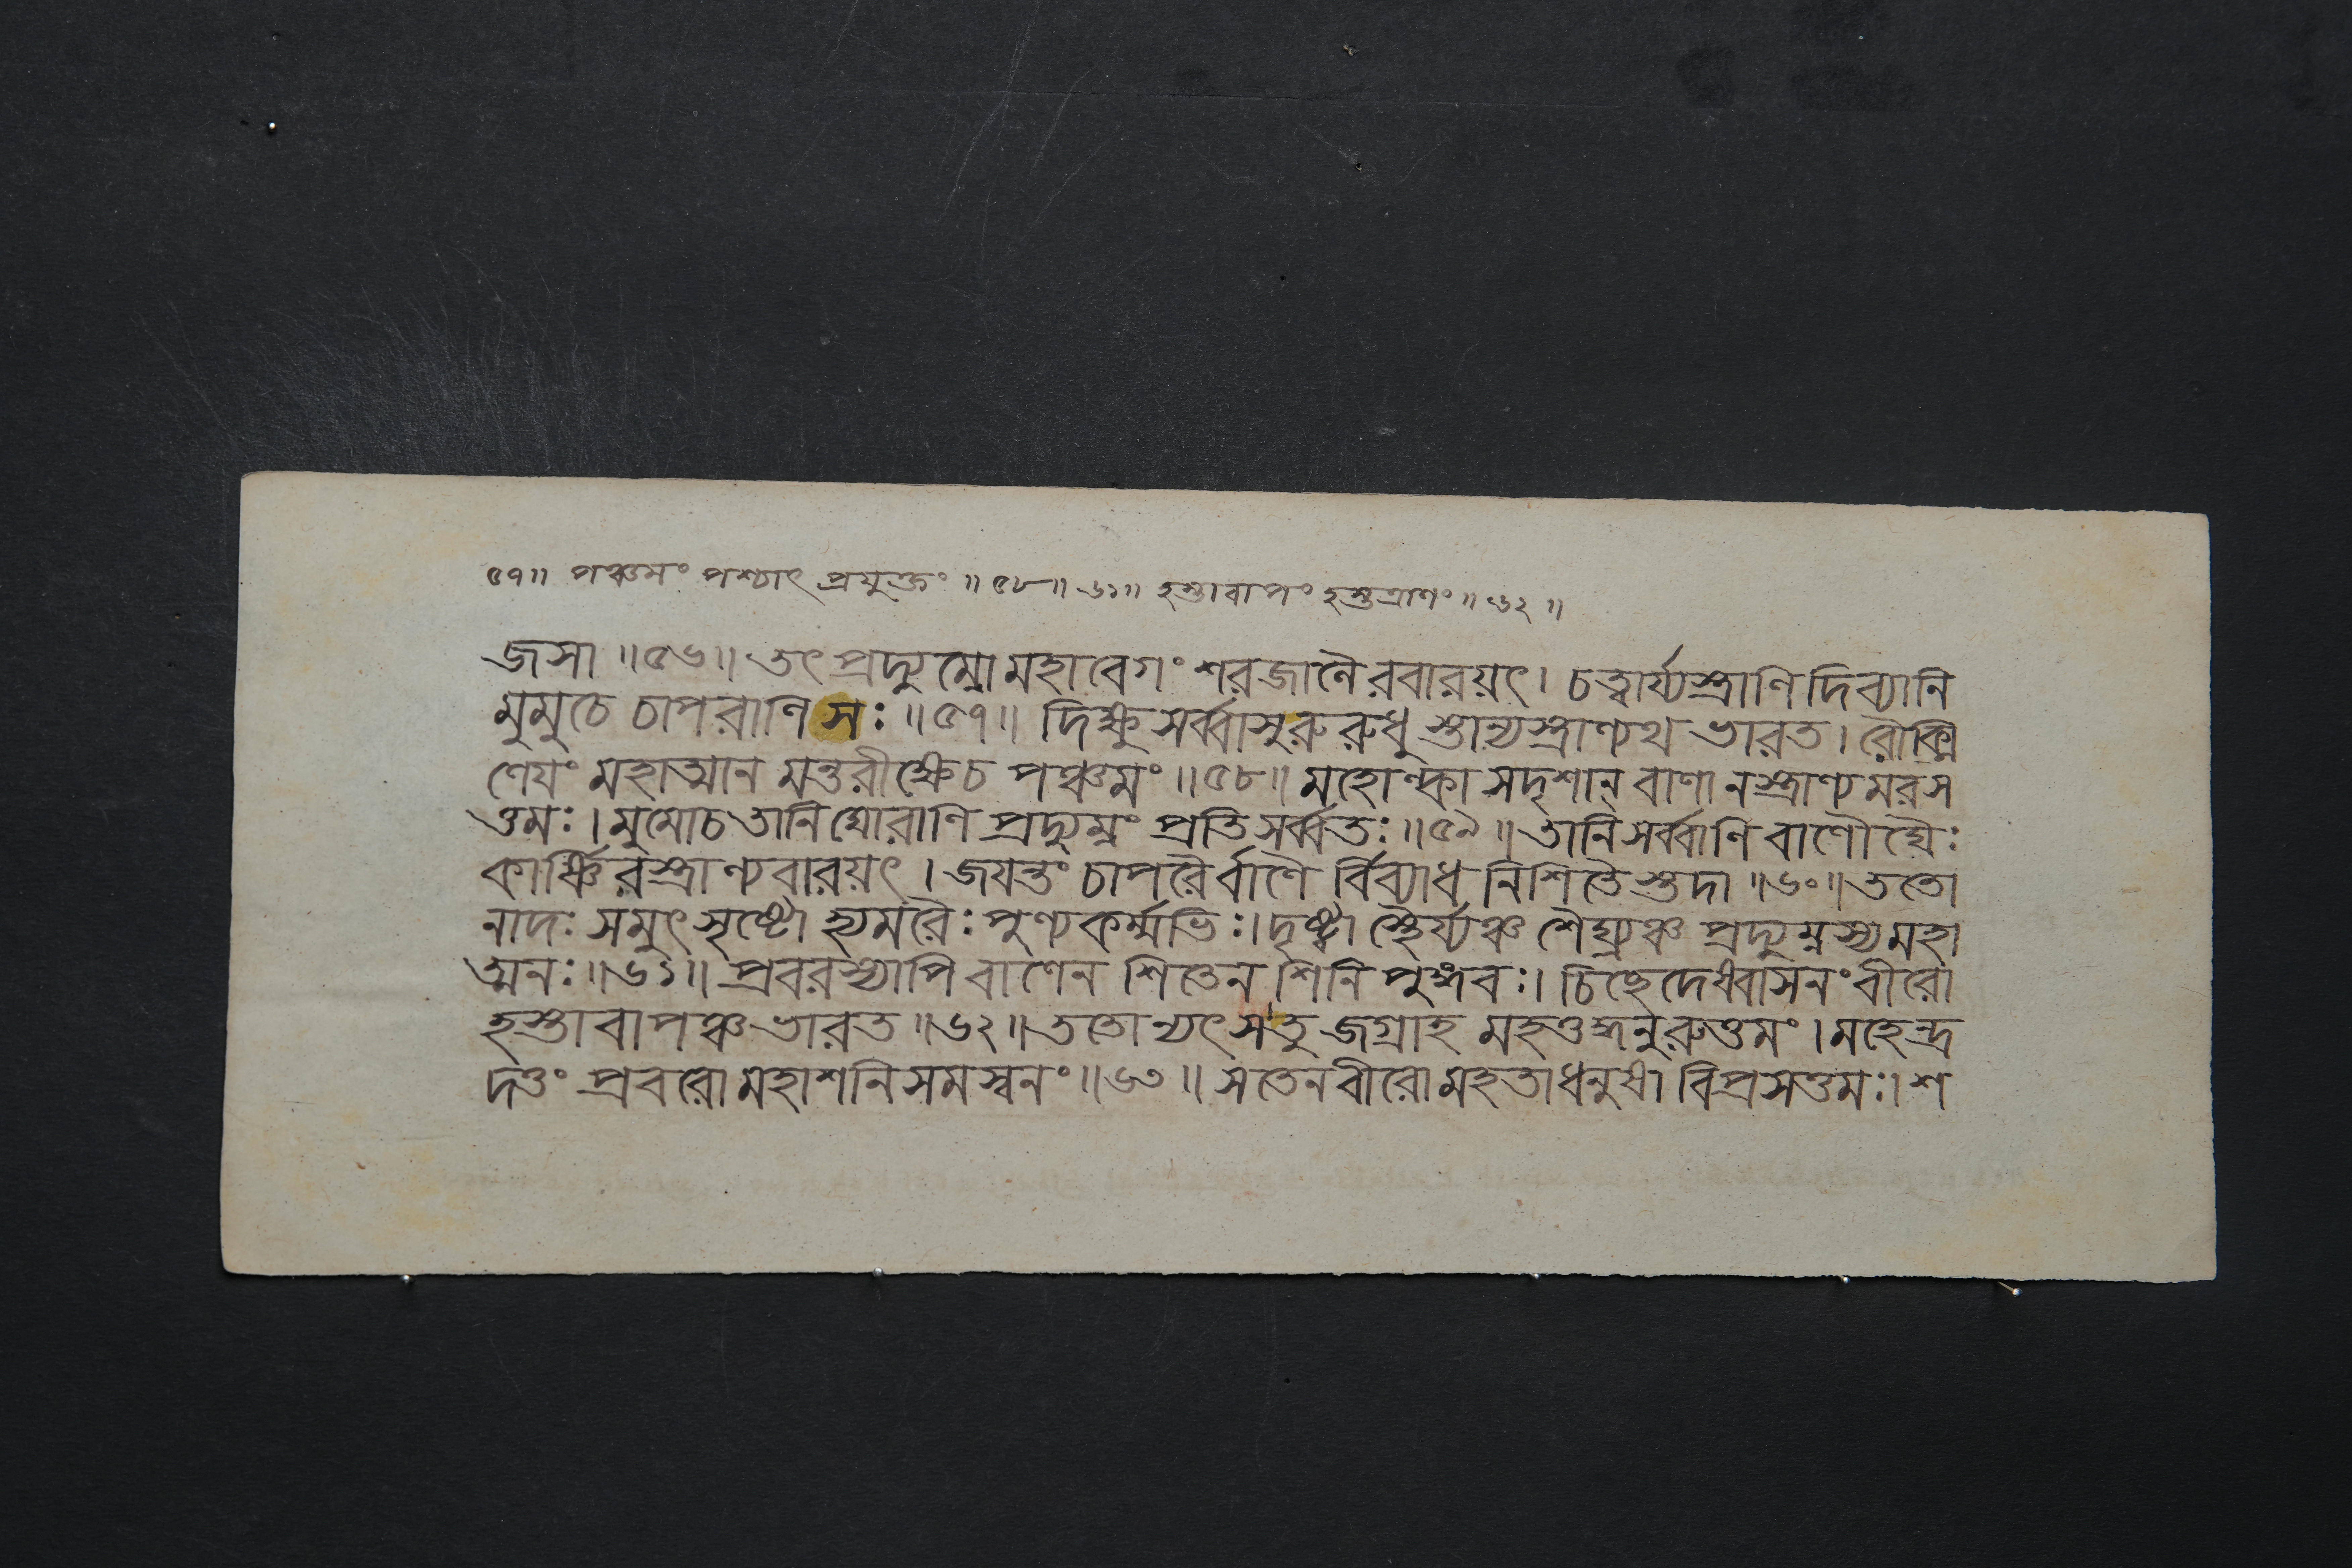 ৫৭॥ পঞ্চমং পশ্চাৎ প্রযুক্তং ॥ ৫৮॥ ৬১॥ হস্তাবাপং হস্তত্রাণং ॥ ৬২ ॥
জসা ॥৫৬॥ তৎ প্রদ্যুম্নো মহাবেগং শরজালৈ রবারয়ৎ। চত্বার্য্যস্ত্রাণি দিব্যানি
মুমুচে চাপরাণি সঃ ॥৫৭॥ দিক্ষু সর্ব্বাসু রুরুধু স্তান্যস্ত্রাণ্যথ ভারত। রৌক্মি
ণেযং মহাত্মান মন্তরীক্ষেচ পঞ্চমং ॥৫৮॥ মহোল্কা সদৃশান্ বাণা নস্ত্রাণ্যমরস
ত্তমঃ। মুমোচ তানি ঘোরাণি প্রদ্যুম্নং প্রতি সর্ব্বতঃ ॥৫৯॥ তানি সর্ব্বাণি বাণৌঘৈঃ
কার্ষ্ণি রস্ত্রাণ্যবারয়ৎ। জযন্তং চাপরৈর্বাণৈ র্বিব্যাধ নিশিতৈ স্তদা ॥৬০॥ ততো
নাদঃ সমুৎসৃষ্টো হ্যমরৈঃ পুণ্যকর্ম্মভিঃ। দৃষ্ট্বা স্থৈর্য্যঞ্চ শৈঘ্র্যঞ্চ প্রদ্যুম্নস্য মহা
ত্মনঃ ॥৬১॥ প্রবরস্যাপি বাণেন শিতেন শিনি পুঙ্গবঃ। চিচ্ছেদেষ্বাসনং বীরো
হস্তাবাপঞ্চ ভারত ॥৬২॥ ততোন্যৎ সতু জগ্রাহ মহত্তদ্ধনুরুত্তমং। মহেন্দ্র
দত্তং প্রবরো মহাশনিসমস্বনং ॥৬৩॥ সতেন বীরো মহতা ধনুষা বিপ্রসত্তমঃ। শ